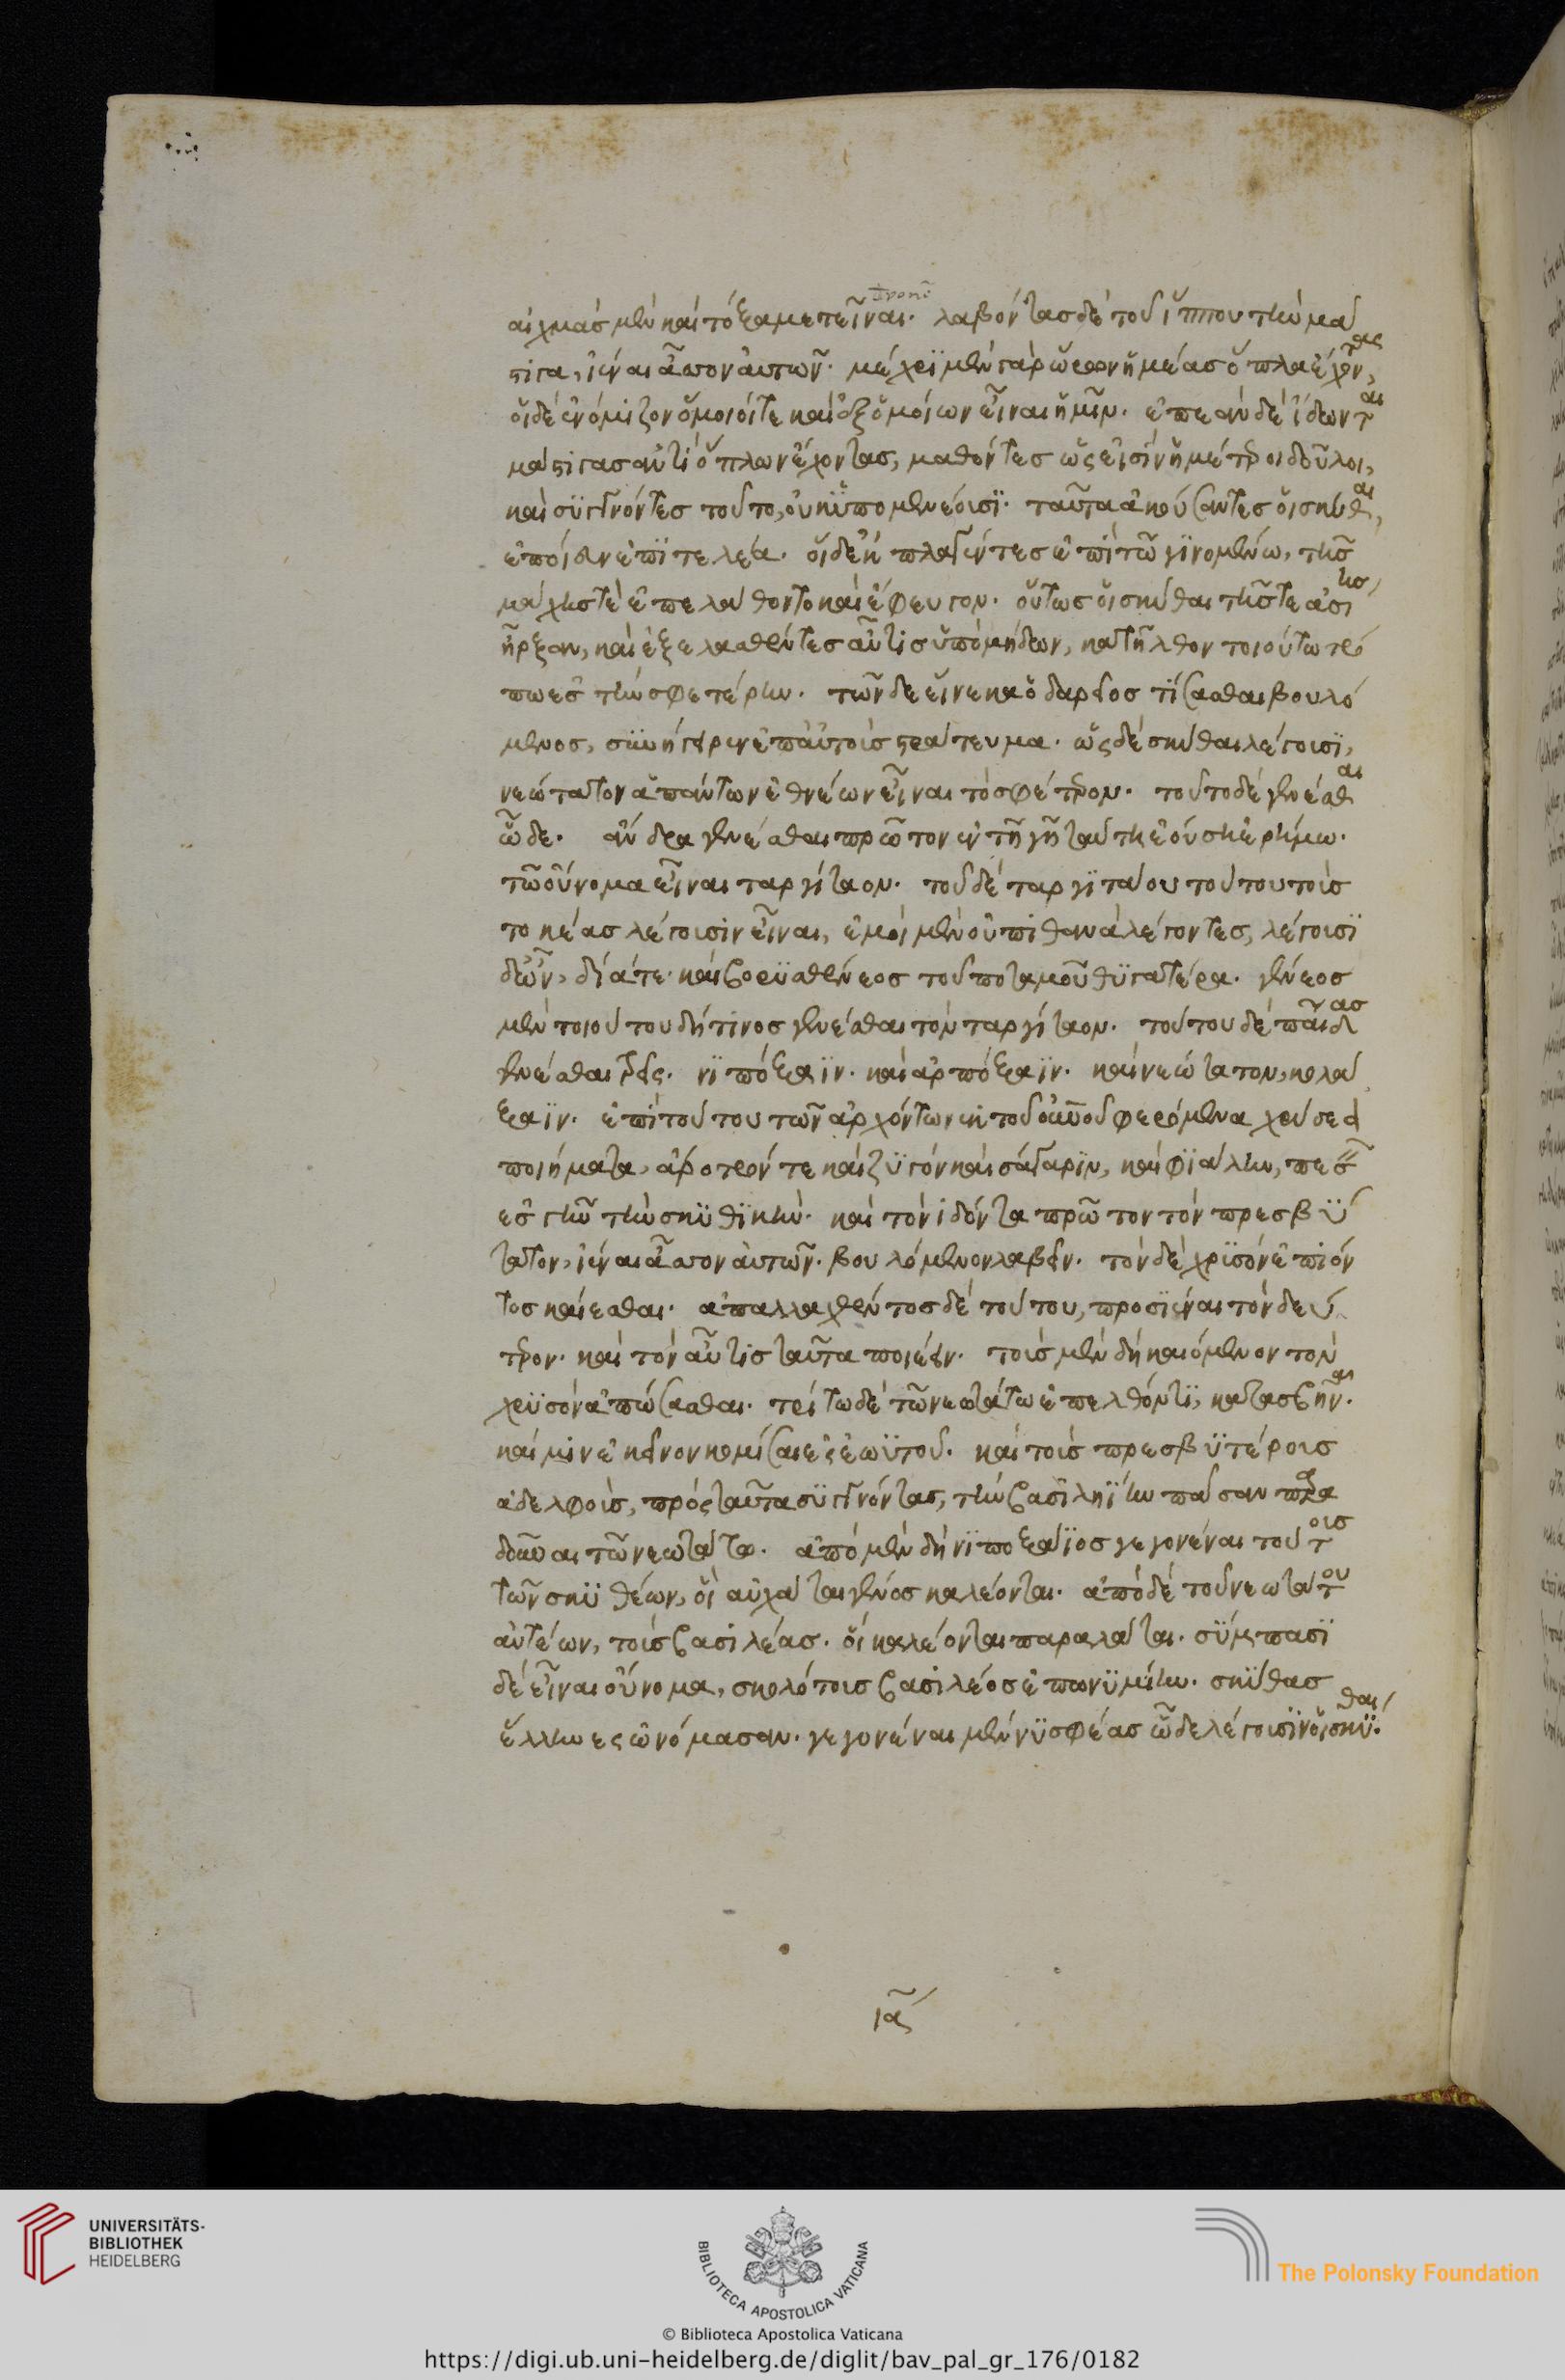 αἰχμὰσ μὲν καὶ τόξα μετεῖναι. λαβόντασ δὲ τοῦ ἵππου τὴν μά
στιγα, ἰέναι ἆσσον αὐτῶν. μέχρϊ μὲν γὰρ ὥρεον ἡμέασ ὅπλα ἔχοντας,
οἵδε ἐνόμιζον ὅμοιοί τε καὶ ἐξ ὁμοίων εἶναι ἡμῖν. ἐπεὰν δὲ ἴδωνται
μάστιγασ ἀντὶ ὅπλων ἔχοντασ, μαθόντεσ ὥς εἰσιν ἡμέτεροι δοῦλοι,
καὶ σϋγγνόντεσ τοῦτο, οὐκ ὑπομενέουσϊ. ταῦτα ἀκούσαντεσ οἱ σκύθαι,
ἐποίευν ἐπϊτελέα. οἱ δ' ἐκπλαγέντεσ ἐπὶ τῶ γϊνομένω, τῆσ
μάχησ τὲ ἐπελάθοντο καὶ ἔφευγον. οὕτωσ οἱ σκύθαι τῆσ τε ἀσίησ
ἦρξαν, καὶ ἐξελασθέντεσ αὖτισ ὑπὸ μήδων, κατῆλθον τοιούτω τρό
πω εσ τὴν σφετέρην. τῶν δε εἵνεκα ὁ δαρεῖοσ τίσασθαι βουλό
μενοσ, σϋνήγειρεν ἐπ' αὐτοὺσ στράτευμα. ὥς δὲ σκύθαι λέγουσϊ,
νεώτατον ἁπάντων ἐθνέων εἶναι τὸ σφέτερον. τοῦτο δὲ γενέσθαι
ὧδε. ἄνδρα γενέσθαι πρῶτον ἐν τῆ γῆ ταύτη ἐούση ἐρήμω.
τῶ οὔνομα εἶναι ταργίταον. τοῦ δὲ ταργϊτάου τούτου τοὺσ
τοκέασ λέγουσιν εἶναι, ἐμοὶ μὲν οὐ πιθανὰ λέγοντεσ, λέγουσϊ
δ' ὦν, δία τε καὶ βορϋσθένεοσ τοῦ ποταμοῦ θϋγατέρα. γένεοσ
μὲν τοιούτου δή τινοσ γενέσθαι τὸν ταργίταον. τούτου δὲ παῖδασ
γενέσθαι τρεῖς. νϊπόξαϊν. καὶ ἀρπόξαϊν. καὶ νεώτατον, κολά
ξαϊν. ἐπὶ τούτου τῶν ἀρχόντων ἐκ τοῦ οὐρανοῦ φερόμενα χρύσεα
ποιήματα, ἄροτρόν τε καὶ ζϋγὸν καὶ σάγαρϊν, καὶ φϊάλην, πεσεῖν
εσ γῆν τὴν σκϋθϊκὴν. καὶ τὸν ἰδόντα πρῶτον τὸν πρεσβύ
τατον, ἰέναι ἆσσον αὐτῶν. βουλόμενον λαβεῖν. τὸν δὲ χρϋσὸν ἐπιόν
τοσ καίεσθαι. ἀπαλλαχθέντοσ δὲ τούτου, προσϊέναι τὸν δεύ
τερον. καὶ τὸν αὖτισ ταῦτα ποιέειν. τοὺσ μὲν δὴ καιόμενον τὸν
χρϋσὸν ἀπώσασθαι. τρίτω δὲ τῶ νεωτάτω ἐπελθόντϊ, κατασβῆναι.
καί μιν ἐκεῖνον κομίσαι ἐς ἑωϋτοῦ. καὶ τοὺσ πρεσβϋτέρουσ
ἀδελφοὺσ, πρὸς ταῦτα σϋγγνόντασ, τὴν βασϊληΐην πᾶσαν παρα
δοῦναι τῶ νεωτάτω. ἀπὸ μὲν δὴ νϊποξάϊοσ γεγονέναι τούτουσ
τῶν σκϋθέων, οἳ αὐχάται γένοσ καλέονται. ἀπὸ δὲ τοῦ νεωτάτου
αὐτέων, τοὺσ βασιλέασ. οἳ καλέονται παραλάται. σύμπασϊ
δὲ εἶναι οὔνομα, σκολότουσ βασιλέοσ ἐπωνϋμίην. σκύθασ
ἕλληνες ὠνόμασαν. γεγονέναι μέν νϋν σφέασ ὧδε λέγουσϊν οἱ σκύθαι.
ια
UNIVERSITÄTS-
BIBLIOTHEK
HEIDELBERG
BIBLIOTECA APOSTOLICA VATICANA
The Polonsky Foundation
© Biblioteca Apostolica Vaticana
https://digi.ub.uni-heidelberg.de/diglit/bav_pal_gr_176/0182